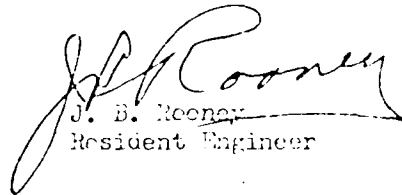 J B Rooney
J. B. Rooney
Resident Engineer